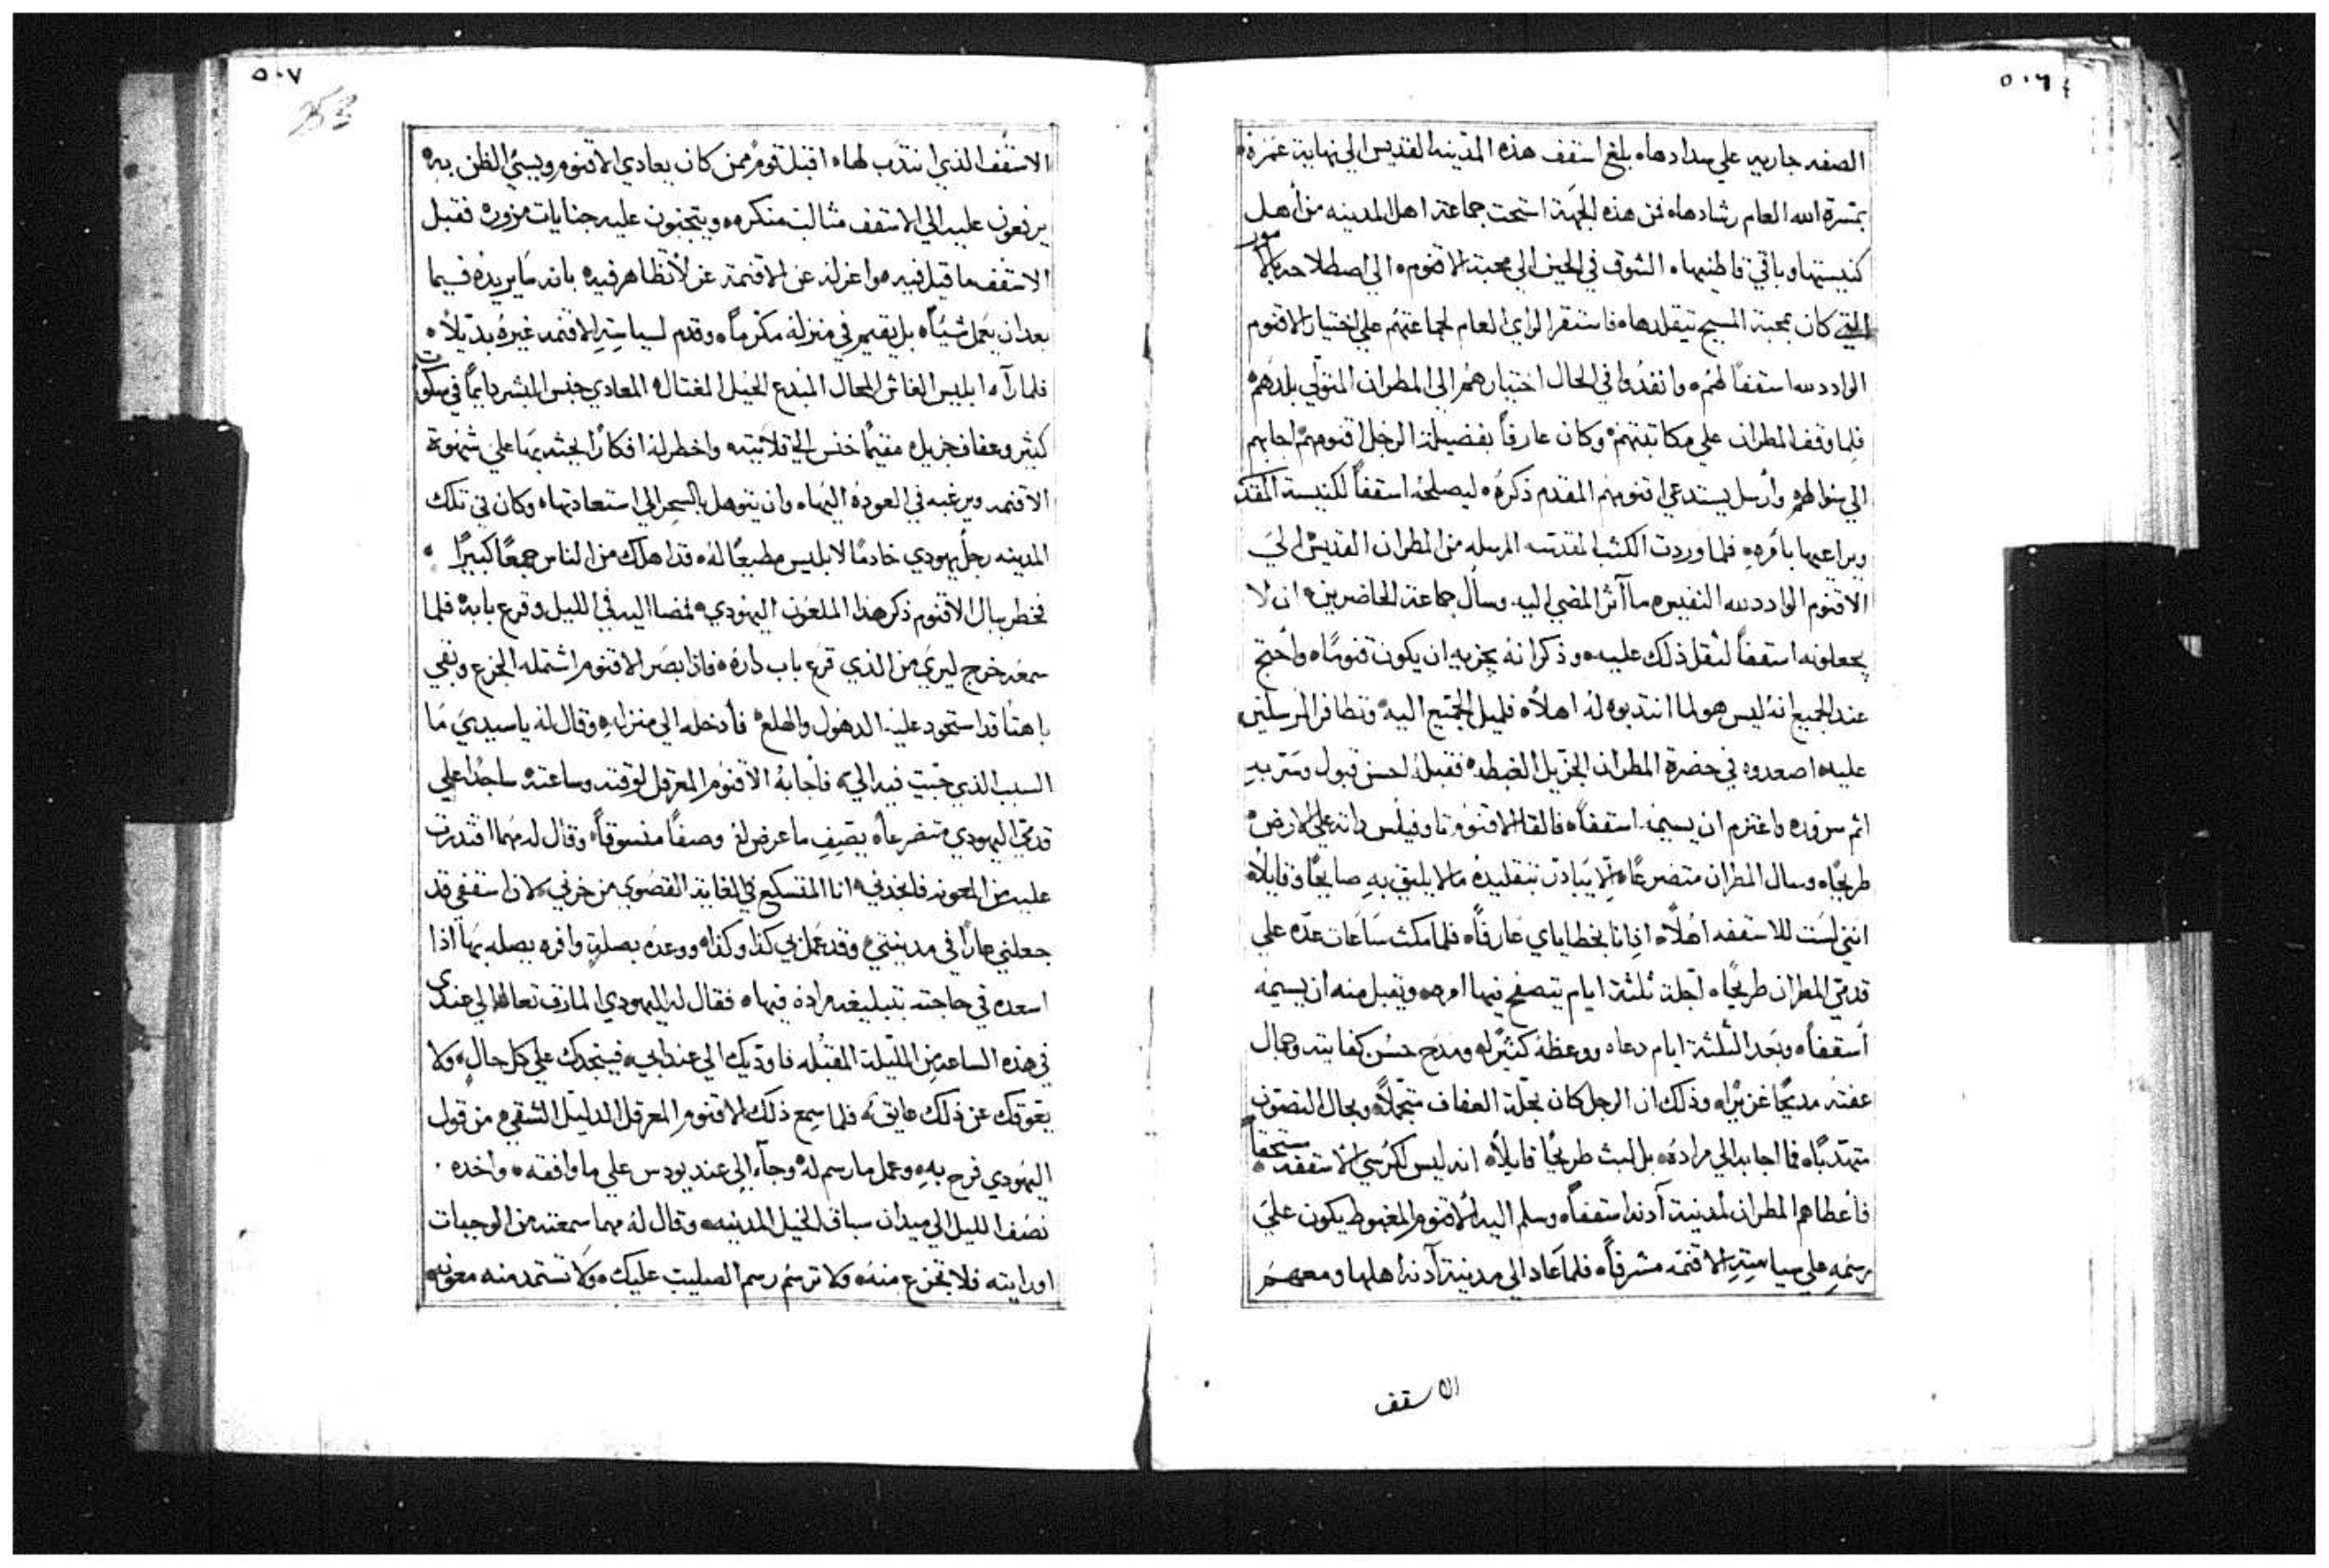 ٥٠٦
الصفه جاريه علي سدادها ٥ بلغ اسقف هذه المدينه القديس الي نهاية عمره
بمسرة الله العام رشادها ٥ فمن هذه الجهة استحت جماعة اهل المدينه من أهل
كنيستها وباقي قاطنيها ٥ الشوق في الحين الي محبة الاقنوم ٥ الي اصطلاحه بالأمور
التي كان بمحبة المسيح يتقلدها ٥ فاستقر الراي العام لجماعتهم علي اختيار الاقنوم
الوادد لله اسقفاً لهم ٥ وانفدوا في الحال اختيارهم الي المطران المتولي بلدهم
فلما وقف المطران علي مكاتبتهم ٥ وكان عارفاً بفضيلة الرجل اقنومهم اجابهم
الي سواطهم وأرسل يستدعي اقنومهم المقدم ذكره ٥ ليصلحه اسقفاً لكنيسة المقد
ويراعيها بأمره فلما وردت الكتب المقدسه المرسله من المطران القديس الي
الاقنوم الوادد لله النفيس ٥ ما آثر المضي اليه وسأل جماعة الحاضرين ٥ ان لا
يجعلونه اسقفاً لثقل ذلك عليه ٥ وذكر انه يجزيه ان يكون قنوماً ٥ واحتج
عند الجميع انه ليس هو لما انتدبوه له اهلاً ٥ فلميل الجميع اليه وتظافر المرسلين
عليه ٥ اصعدوه في حضرة المطران الجزيل الغبطه فقبله احسن قبول وسر به
اتم سروره واعتزم ان يسيمه اسقفاً ٥ فالقا الاقنوم تاوفيلس ذاته علي الارض
طريحاً ٥ وسال المطران متضرعاً ٥ الا يتبادر بتقليده ما لا يليق به صايحاً وقايلاً
انني لست للاسقفه اهلاً ٥ اذ انا بخطاياي عارفاً ٥ فلما مكث ساعات عده علي
قدمي المطران طريحاً ٥ اجله ثلثة ايام يتصفح فيها امره ويقبل منه أن يسيمه
أسقفاً ٥ وبعد الثلثة ايام دعاه ووعظه كثيراً ٥ ومدح حسن كفايته وجمال
عفته مديحاً غزيراً ٥ وذلك ان الرجل كان بحلة العفاف متجملاً ٥ وبجال التصون
متهدباً ٥ فما اجابه الي مراده ٥ بل لبث طريحاً قايلاً ٥ انه ليس لكرسي الاسقفه مستحقاً
فأعطاهم المطران لمدينة آدنه اسقفاً ٥ وسلم اليه الاقنوم المغبوط يكون علي
رسمه علي سياسة الاقنمة مشرفاً ٥ فلما عاد الي مدينة آدنه اهلها ومعهم
الاسقف
٥٠٧
253
الاسقف الذي انتدب لها ٥ اقبل قوم ممن كان يعادي الاقنوم ويسيي الظن به
يرفعون عليه الي الاسقف مثالب منكره ٥ ويتجنبون عليه جنايات مزوره فقبل
الاسقف ما قيل فيه ٥ واعزله عن الاقنمة عن لأتظاهر فيه ٥ بانه ما يريده فيما
بعد ان يعمل شياً ٥ بل يقيم في منزله مكرماً ٥ وقدم لسياسة الاقنمه غيره بديلاً ٥
فلما رآه ابليس الغاش المحال المبدع الحيل المغتال ٥ المعادي جنس البشر دايماً في سكوت
كثير وعفاف جزيل ٥ مقيماً خنس الي قلايته واخطر له افكاراً يحثه بها علي شهوة
الاقنمه ويرغبه في العوده اليها ٥ وان يتوصل بالسحر الي استعادتها ٥ وكان في تلك
المدينه رجل يهودي خادمًا لابليس مطيعًا له ٥ قد اهلك من الناس جمعًا كبيرًا ٥
فخطر ببال الاقنوم ذكر هذا الملعون اليهودي ٥ فمضا اليه في الليل وقرع بابه فلما
سمعه خرج ليري من الذي قرع باب داره ٥ فاذا بصر الاقنوم اشتمله الجزع وبقي
باهتاً قد استحود عليه الدهول والهلع ٥ فأدخله الي منزله وقال له يا سيدي ما
السبب الذي جيت فيه الي ٥ فأجابه الاقنوم المعرقل لوقته وساعته ساجداً علي
قدمي اليهودي متضرعاً ٥ يصف ما عرض له وصفاً منسوقاً ٥ وقال له مهما اقتدرت
عليه من المعونه فانجدني ٥ انا المتسكع في الغاية القصوي من حزني ٥ لان اسقفي قد
جعلني عاراً في مدينتي ٥ وقد عمل بي كذا وكذا ٥ ووعده بصلة وافره يصله بها اذا
اسعده في حاجته بتبليغه مراده فيها ٥ فقال له اليهودي المارق تعال الي عندي
في هذه الساعه من الليلة المقبله فاوديك الي عند ابي ٥ فينجدك علي كل حال ٥ ولا
يعوقك عن ذلك عايق ٥ فلما سمع ذلك الاقنوم المعرقل الدليل الشقي ٥ من قول
اليهودي فرح به ٥ وعمل ما رسم له وجآء الي عند يودس علي ما وافقه ٥ واخده ٠
نصف الليل الي ميدان سباق الخيل المدينه ٥ وقال له مهما سمعته من الوجبات
اورايته فلا تجزع منه ٥ ولا ترسم رسم الصليب عليك ٥ ولا تستمد منه معونه